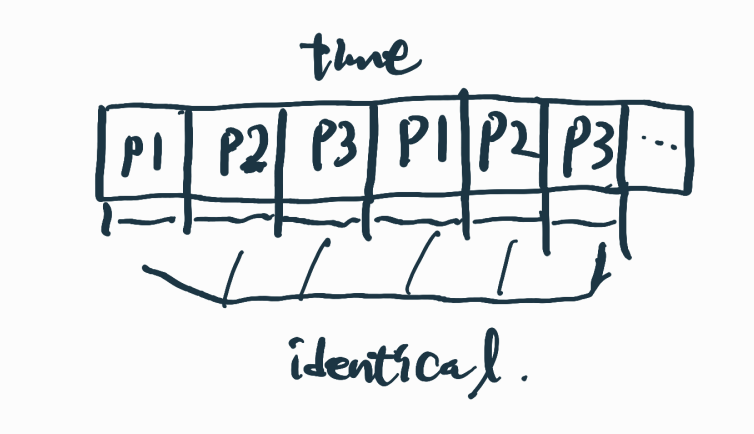 time
P1 P2 P3 P1 P2 P3 ...
identical.